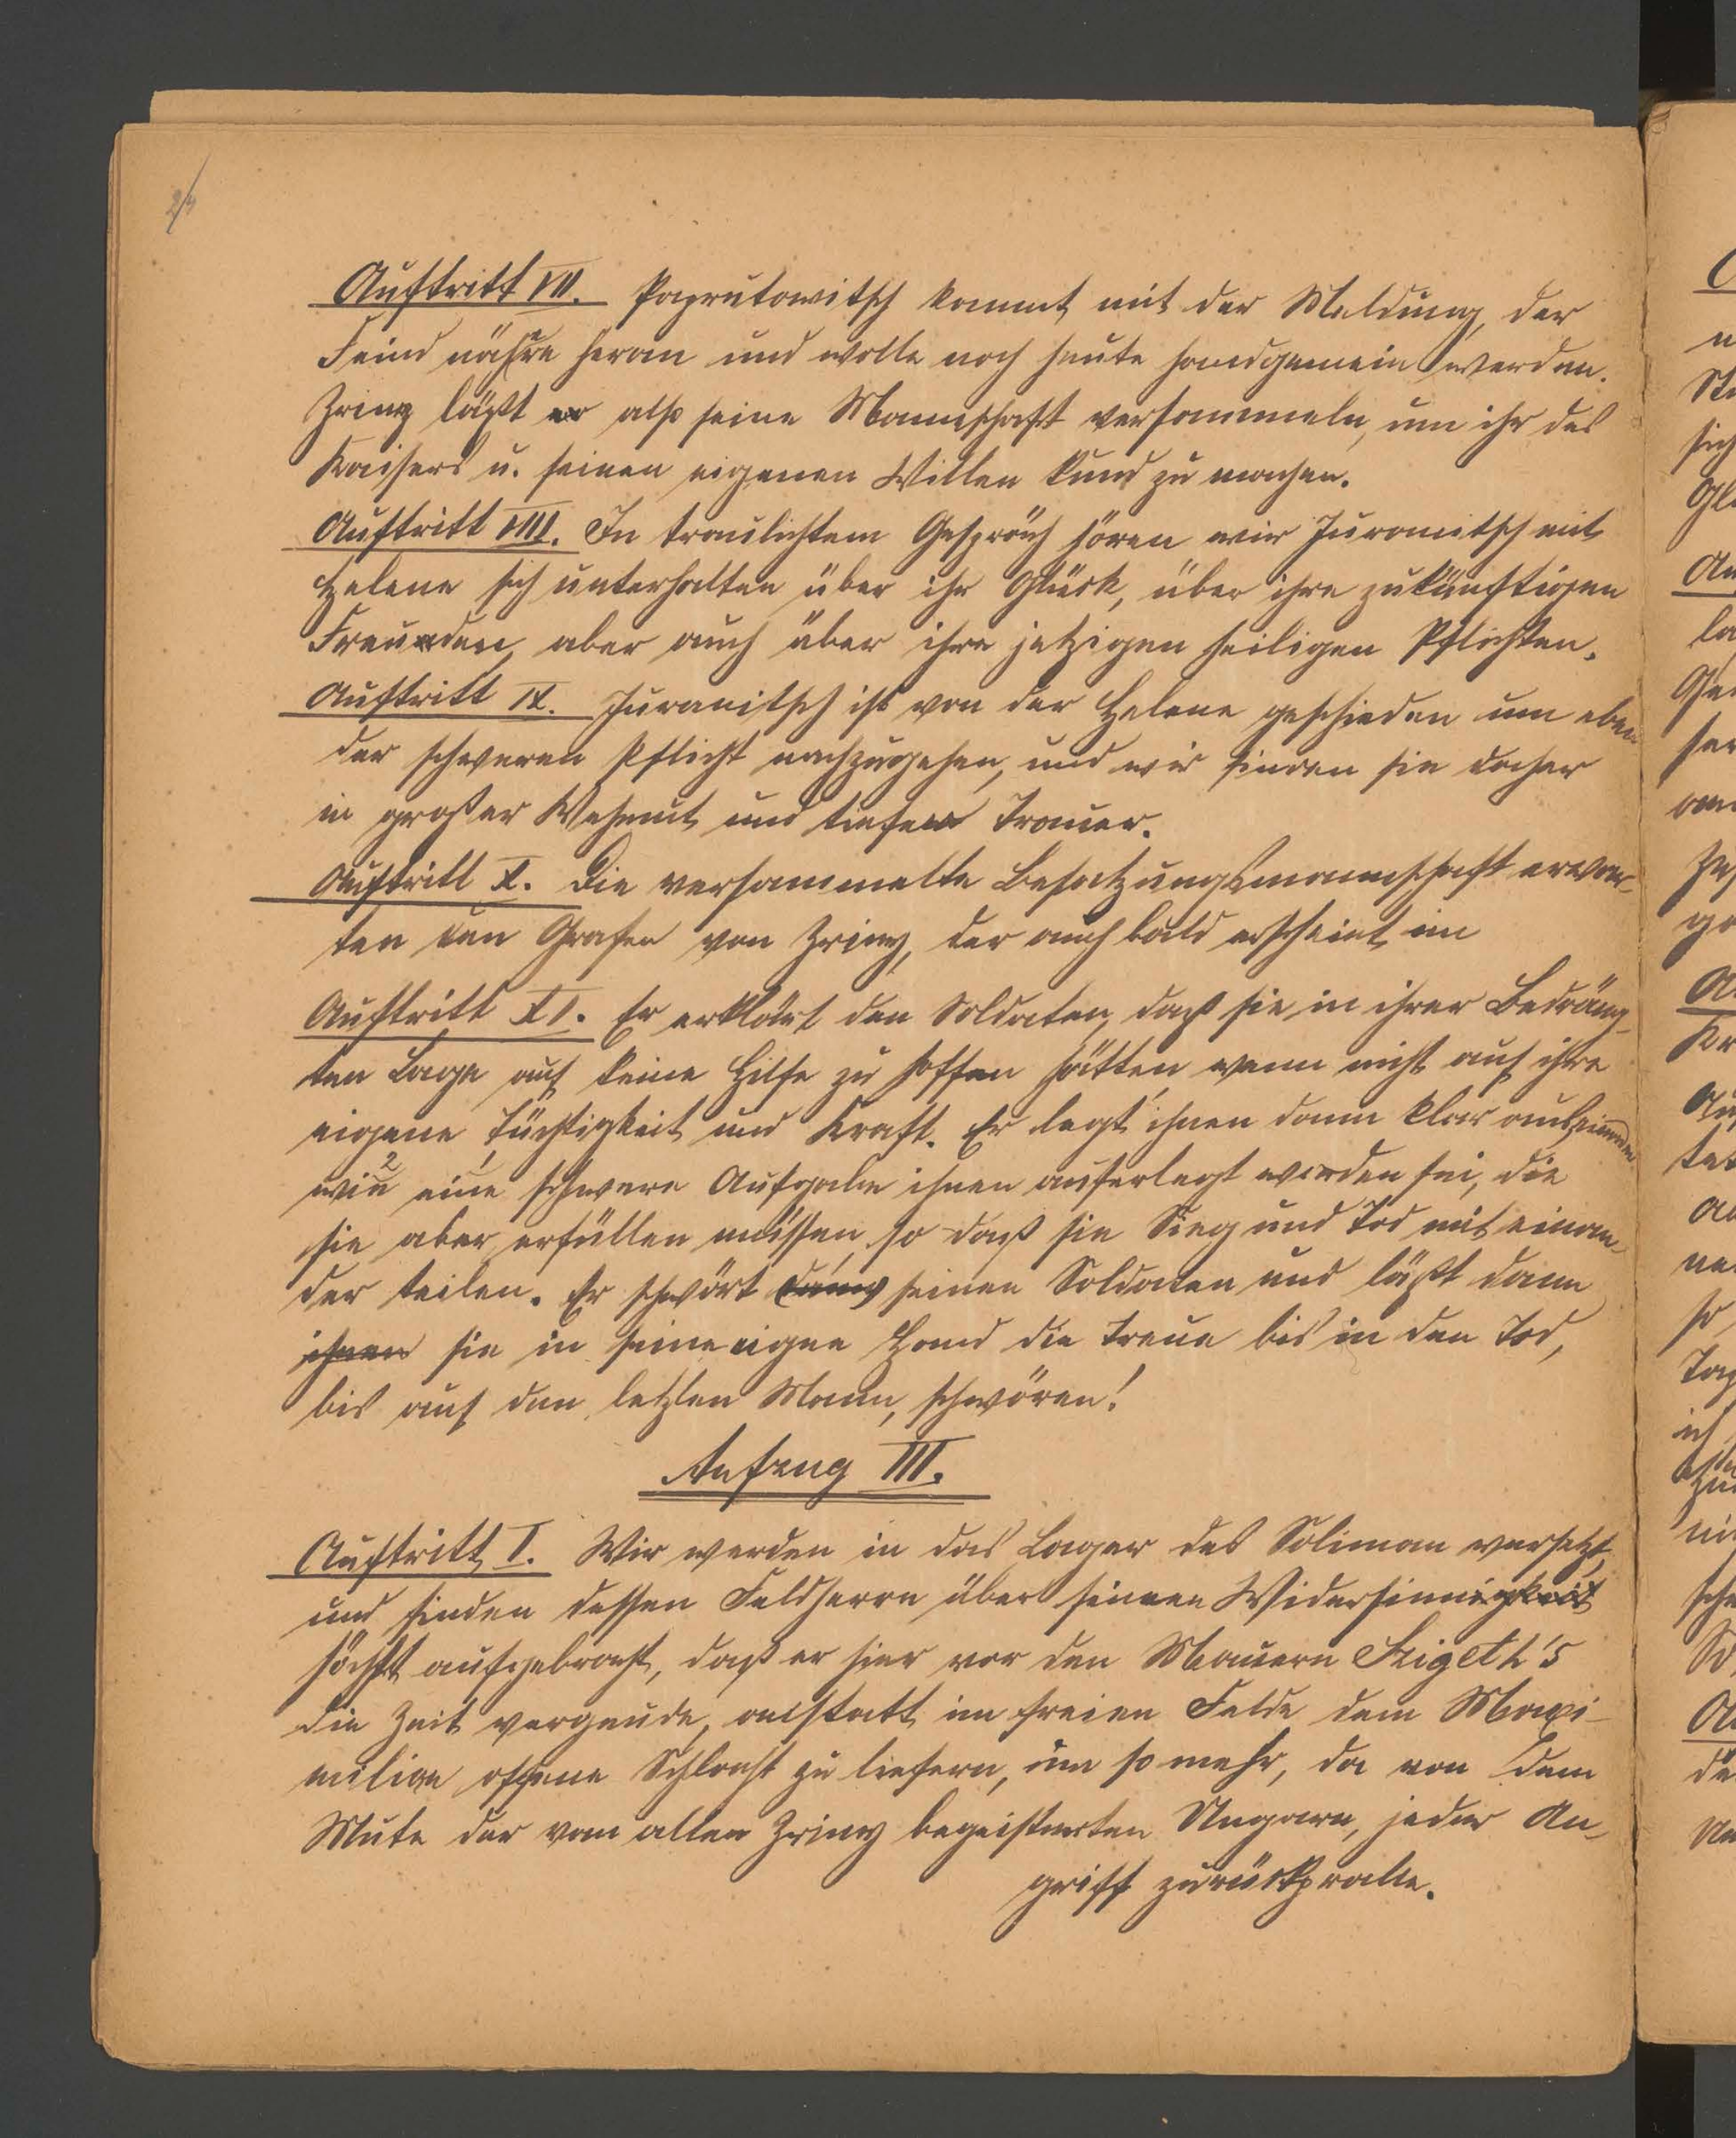 24
Auftritt VII. Paprutowitsch kommt mit der Meldung, der
Feind nähre heran und wolle noch heute handgemein werden.
Zriny läßt er also seine Mannschaft versammeln, um ihr des
Kaisers u. seinen eigenen Willen kund zu machen.
Auftritt VIII. In traulichtem Gespräch hören wir Juranitsch mit
Helene sich unterhalten über ihr Glück, über ihre zukünftigen
Freuden, aber auch über ihre jetzigen heiligen Pflichten.
Auftritt IX. Juranitsch ist von der Helene geschieden um eben
der schweren Pflicht nachzugehen, und wir finden sie daher
in großer Wehmut und tiefer Trauer.
Auftritt X. Die versammelte Besatzungsmannschaft erwar-
ten den Grafen von Zriny, der auch bald erscheint im
Auftritt XI. Er erklärt den Soldaten, daß sie in ihrer Bedräng-
ten Lage auf keine Hilfe zu hoffen hätten wenn nicht auf ihre
eigene Tüchtigkeit und Kraft. Er legt ihnen dann klar auseinander
wie eine schwere Aufgabe ihnen auferlegt worden sei, die
sie aber erfüllen müssen, so daß sie Sieg und Tod mit einan-
der teilen. Er schwört seinen Soldaten und läßt dann
ihnen sie in seine eigne Hand die Treue bis in den Tod,
bis auf den letzten Mann, schwören!
Aufzug III.
Auftritt I. Wir werden in das Lager des Soliman versetzt,
und finden dessen Feldherrn über seinen Widersinnigkeit
höchst aufgebracht, daß er hier vor den Mauern Szigeth's
die Zeit vergeude, anstatt im freien Felde dem Maxi-
milian offene Schlacht zu liefern, um so mehr, da von dem
Mute der vom alten Zriny begeisterten Ungarn, jeder An-
griff zurückpralle.